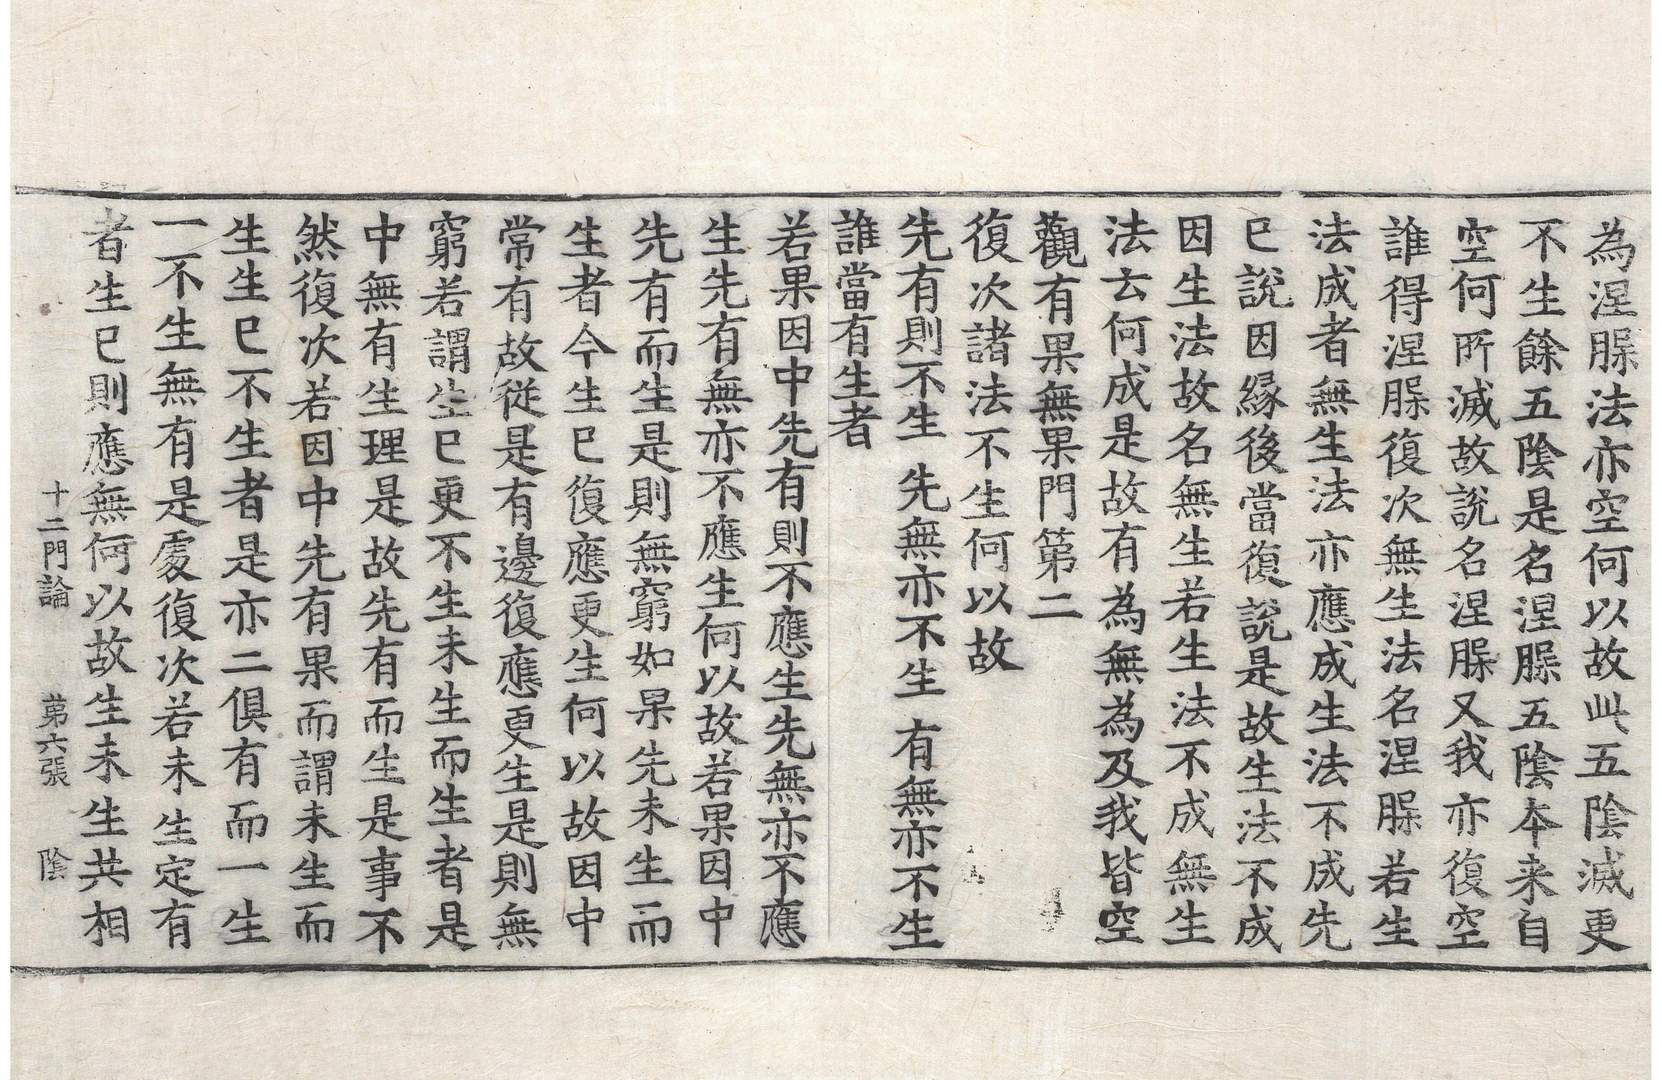 為涅槃法亦空何以故此五陰滅更
不生餘五陰是名涅槃五陰本来自
空何所滅故說名涅槃又我亦復空
誰得涅槃復次無生法名涅槃若生
法成者無生法亦應成生法不成先
已說因緣後當復說是故生法不成
因生法故名無生若生法不成無生
法云何成是故有為無為及我皆空
觀有果無果門第二
復次諸法不生何以故
先有則不生 先無亦不生 有無亦不生
誰當有生者
若果因中先有則不應生先無亦不應
生先有無亦不應生何以故若果因中
先有而生是則無窮如果先未生而
生者今生已復應更生何以故因中
常有故從是有邊復應更生是則無
窮若謂生已更不生未生而生者是
中無有生理是故先有而生是事不
然復次若因中先有果而謂未生而
生生已不生者是亦二俱有而一生
一不生無有是處復次若未生定有
者生已則應無何以故生未生共相
十二門論 第六張 陰